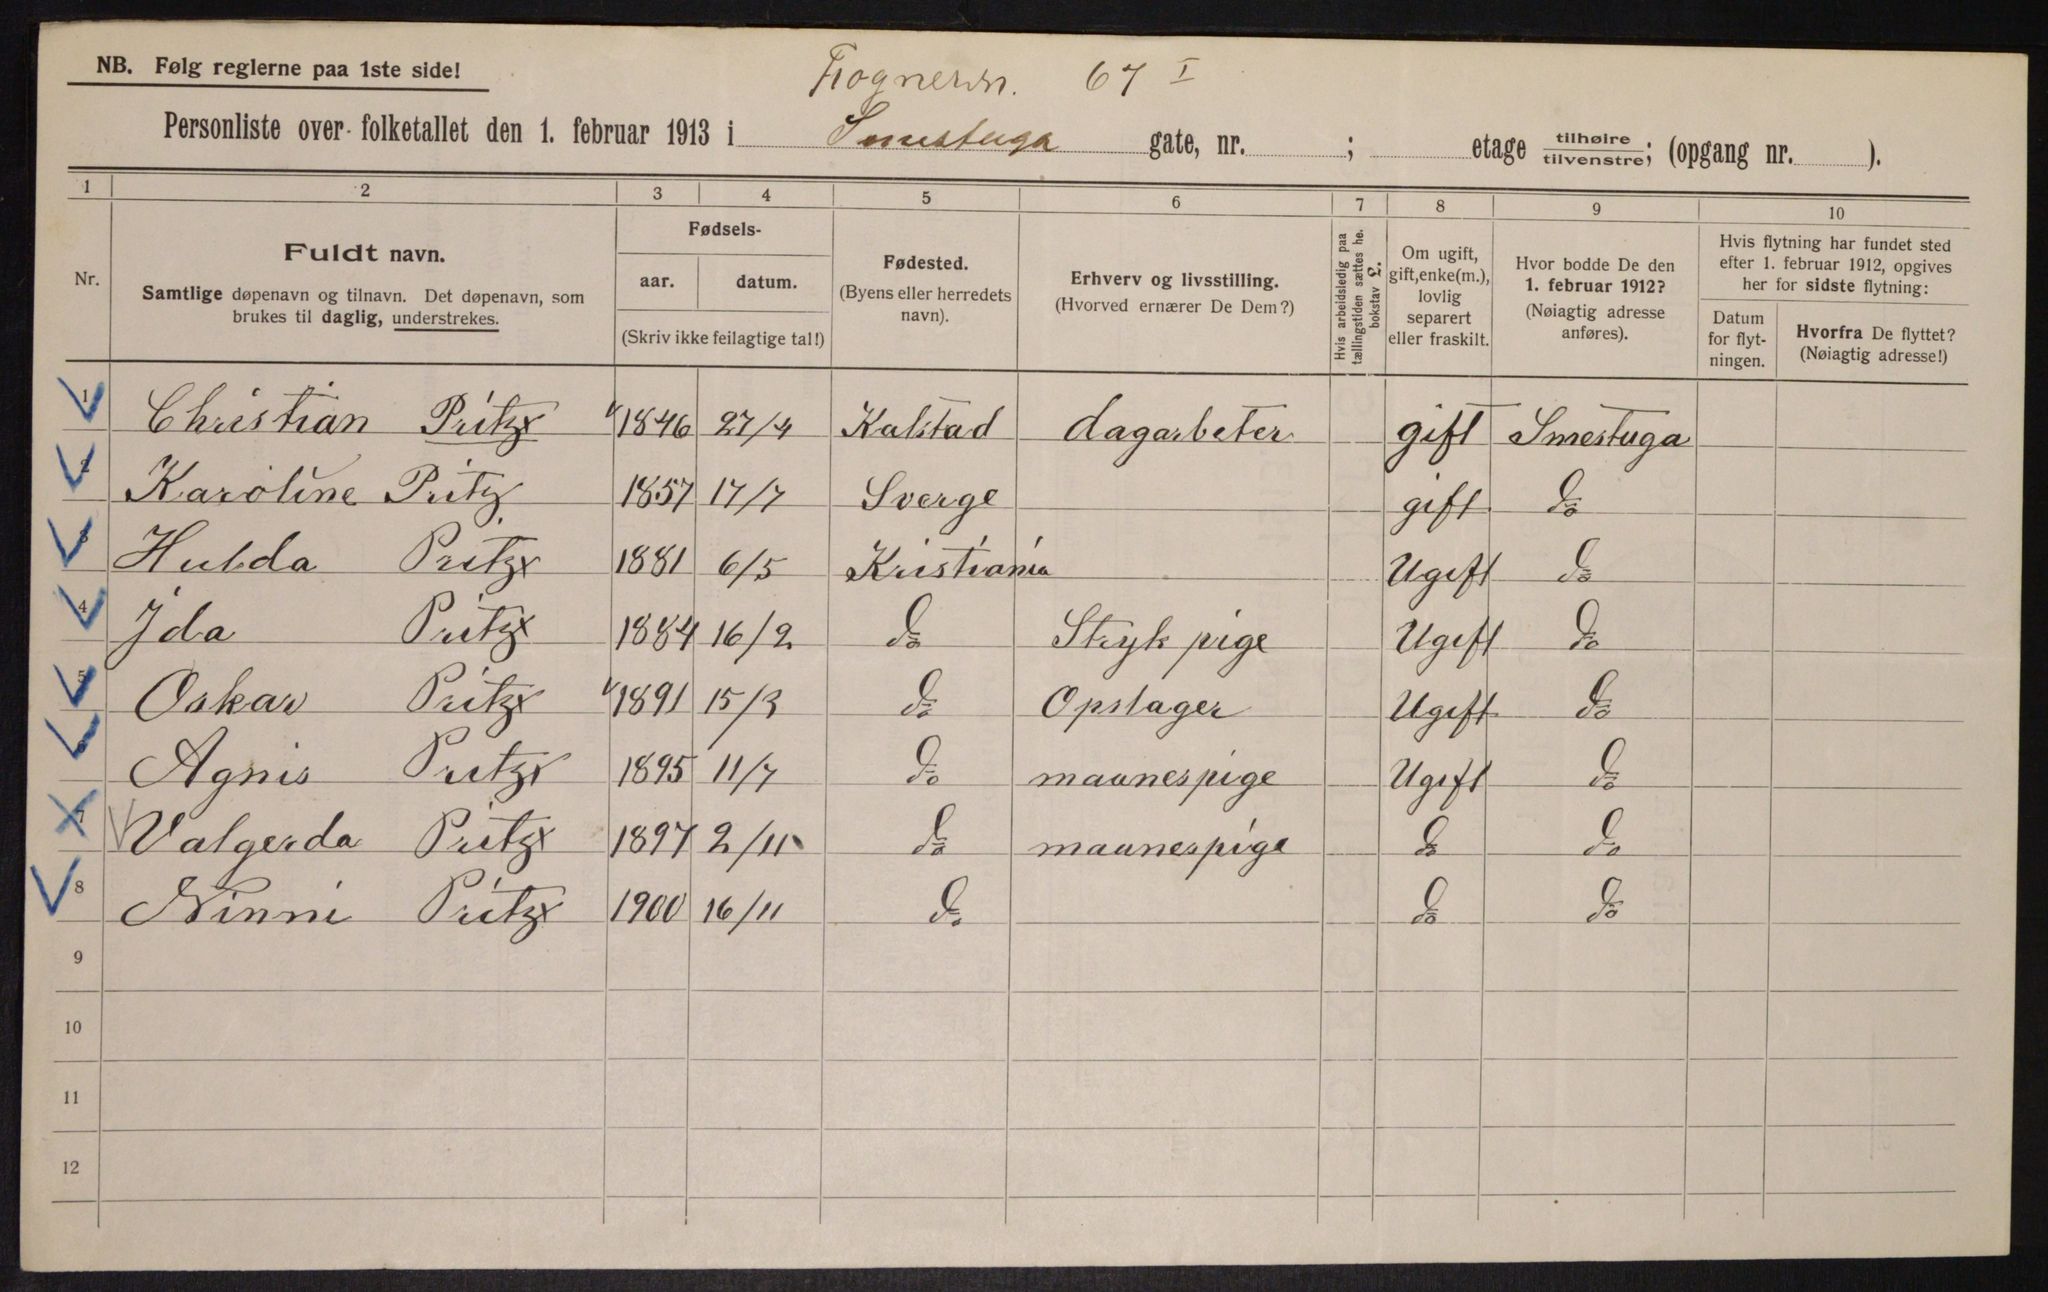 NB. Følg reglerne paa 1ste side!
Frognerv. 67 I
Personliste over folketallet den 1. februar 1913 i Smestuga gate, nr. ; etage tilhøire tilvenstre; (opgang nr. ).
1 2 3 4 5 6 7 8 9 10
Nr.
Fuldt navn.
Samtlige døpenavn og tilnavn. Det døpenavn, som
brukes til daglig, understrekes.
Fødsels-
aar. datum.
(Skriv ikke feilagtige tal!)
Fødested.
(Byens eller herredets
navn).
Erhverv og livsstilling.
(Hvorved ernærer De Dem?)
Hvis arbeidsledig paa
tællingstiden sættes he.
bokstav L.
Om ugift,
gift, enke(m.),
lovlig
separert
eller fraskilt.
Hvor bodde De den
1. februar 1912?
(Nøiagtig adresse
anføres).
Hvis flytning har fundet sted
efter 1. februar 1912, opgives
her for sidste flytning:
Datum
for flyt-
ningen.
Hvorfra De flyttet?
(Nøiagtig adresse!)
1 Christian Pritz 1846 27/4 Kalstad dagarbeter gift Smestuga
2 Karoline Pritz 1857 17/7 Sverge gift do
3 Hulda Pritz 1881 6/5 Kristiania Ugift do
4 Ida Pritz 1884 16/2 do Stryk pige Ugift do
5 Oskar Pritz 1891 15/3 do Opslager Ugift do
6 Agnis Pritz 1895 11/7 do maanespige Ugift do
7 Valgerda Pritz 1897 2/11 do maanespige do do
8 Ninni Pritz 1900 16/11 do do do
9
10
11
12